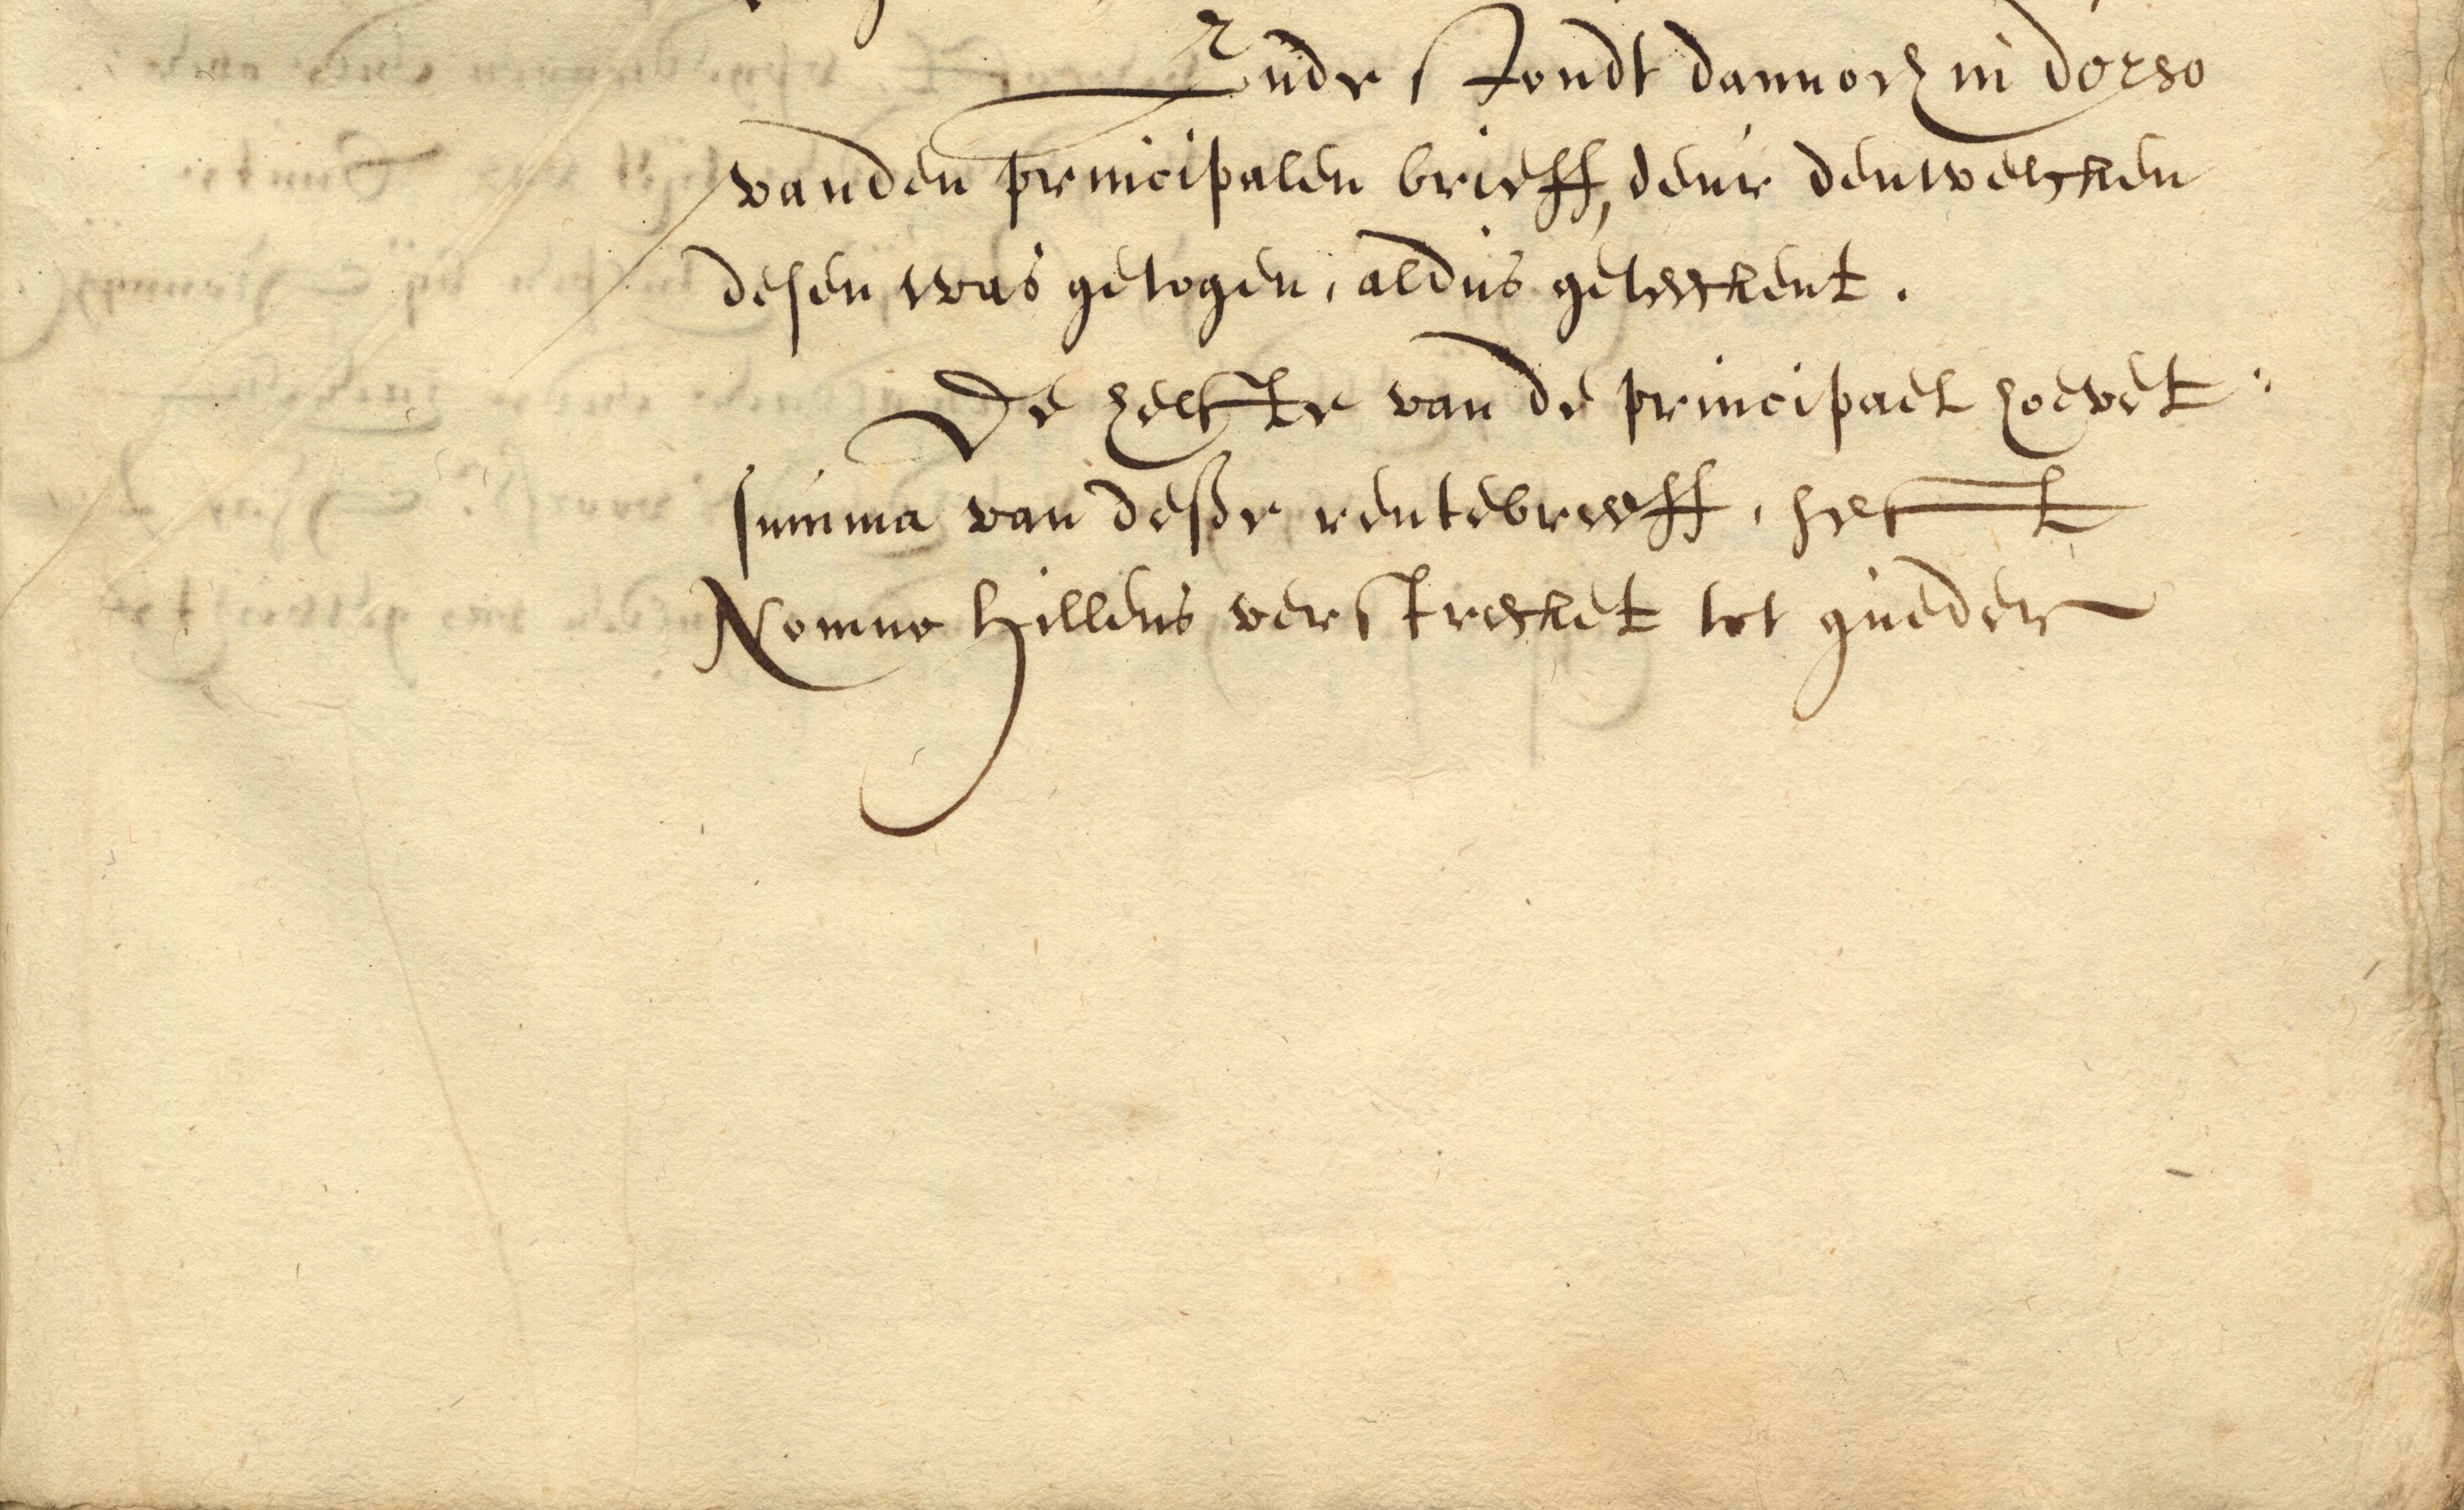 Ende stondt dannoch in dorso
vanden principalen brieff, deur denwelcken
desen was getogen, aldus geteeckent.
De helffte van de principael hoevet
summa van desser rentebrieff, heefft
Nomno Hillens verstrecket tot gueder